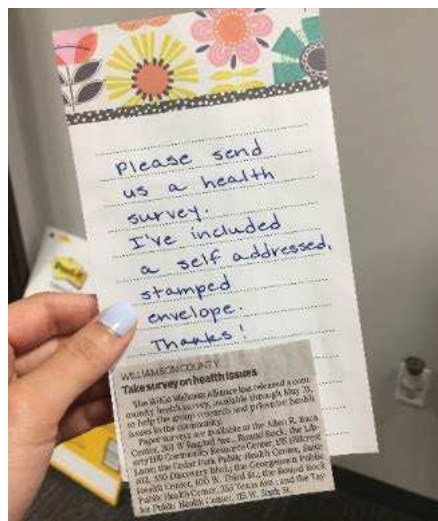 Please send
us a health
survey.
I've included
a self addressed,
stamped
envelope.
Thanks!
WILLIAMSON COUNTY
Take survey on health issues
The WilCo Wellness Alliance has released a com-
munity health survey, available through May 31,
to help the group research and prioritize health
issues in the community.
Paper surveys are available at the Allen R. Baca
Center, 301 W. Bagdad Ave., Round Rock; the Lib-
erty Hill Community Resource Center, 155 Hillcrest
Lane; the Cedar Park Public Health Center, Suite
602, 350 Discovery Blvd.; the Georgetown Public
Health Center, 100 W. Third St.; the Round Rock
Public Health Center, 355 Texas Ave.; and the Tay-
lor Public Health Center, 115 W. Sixth St.